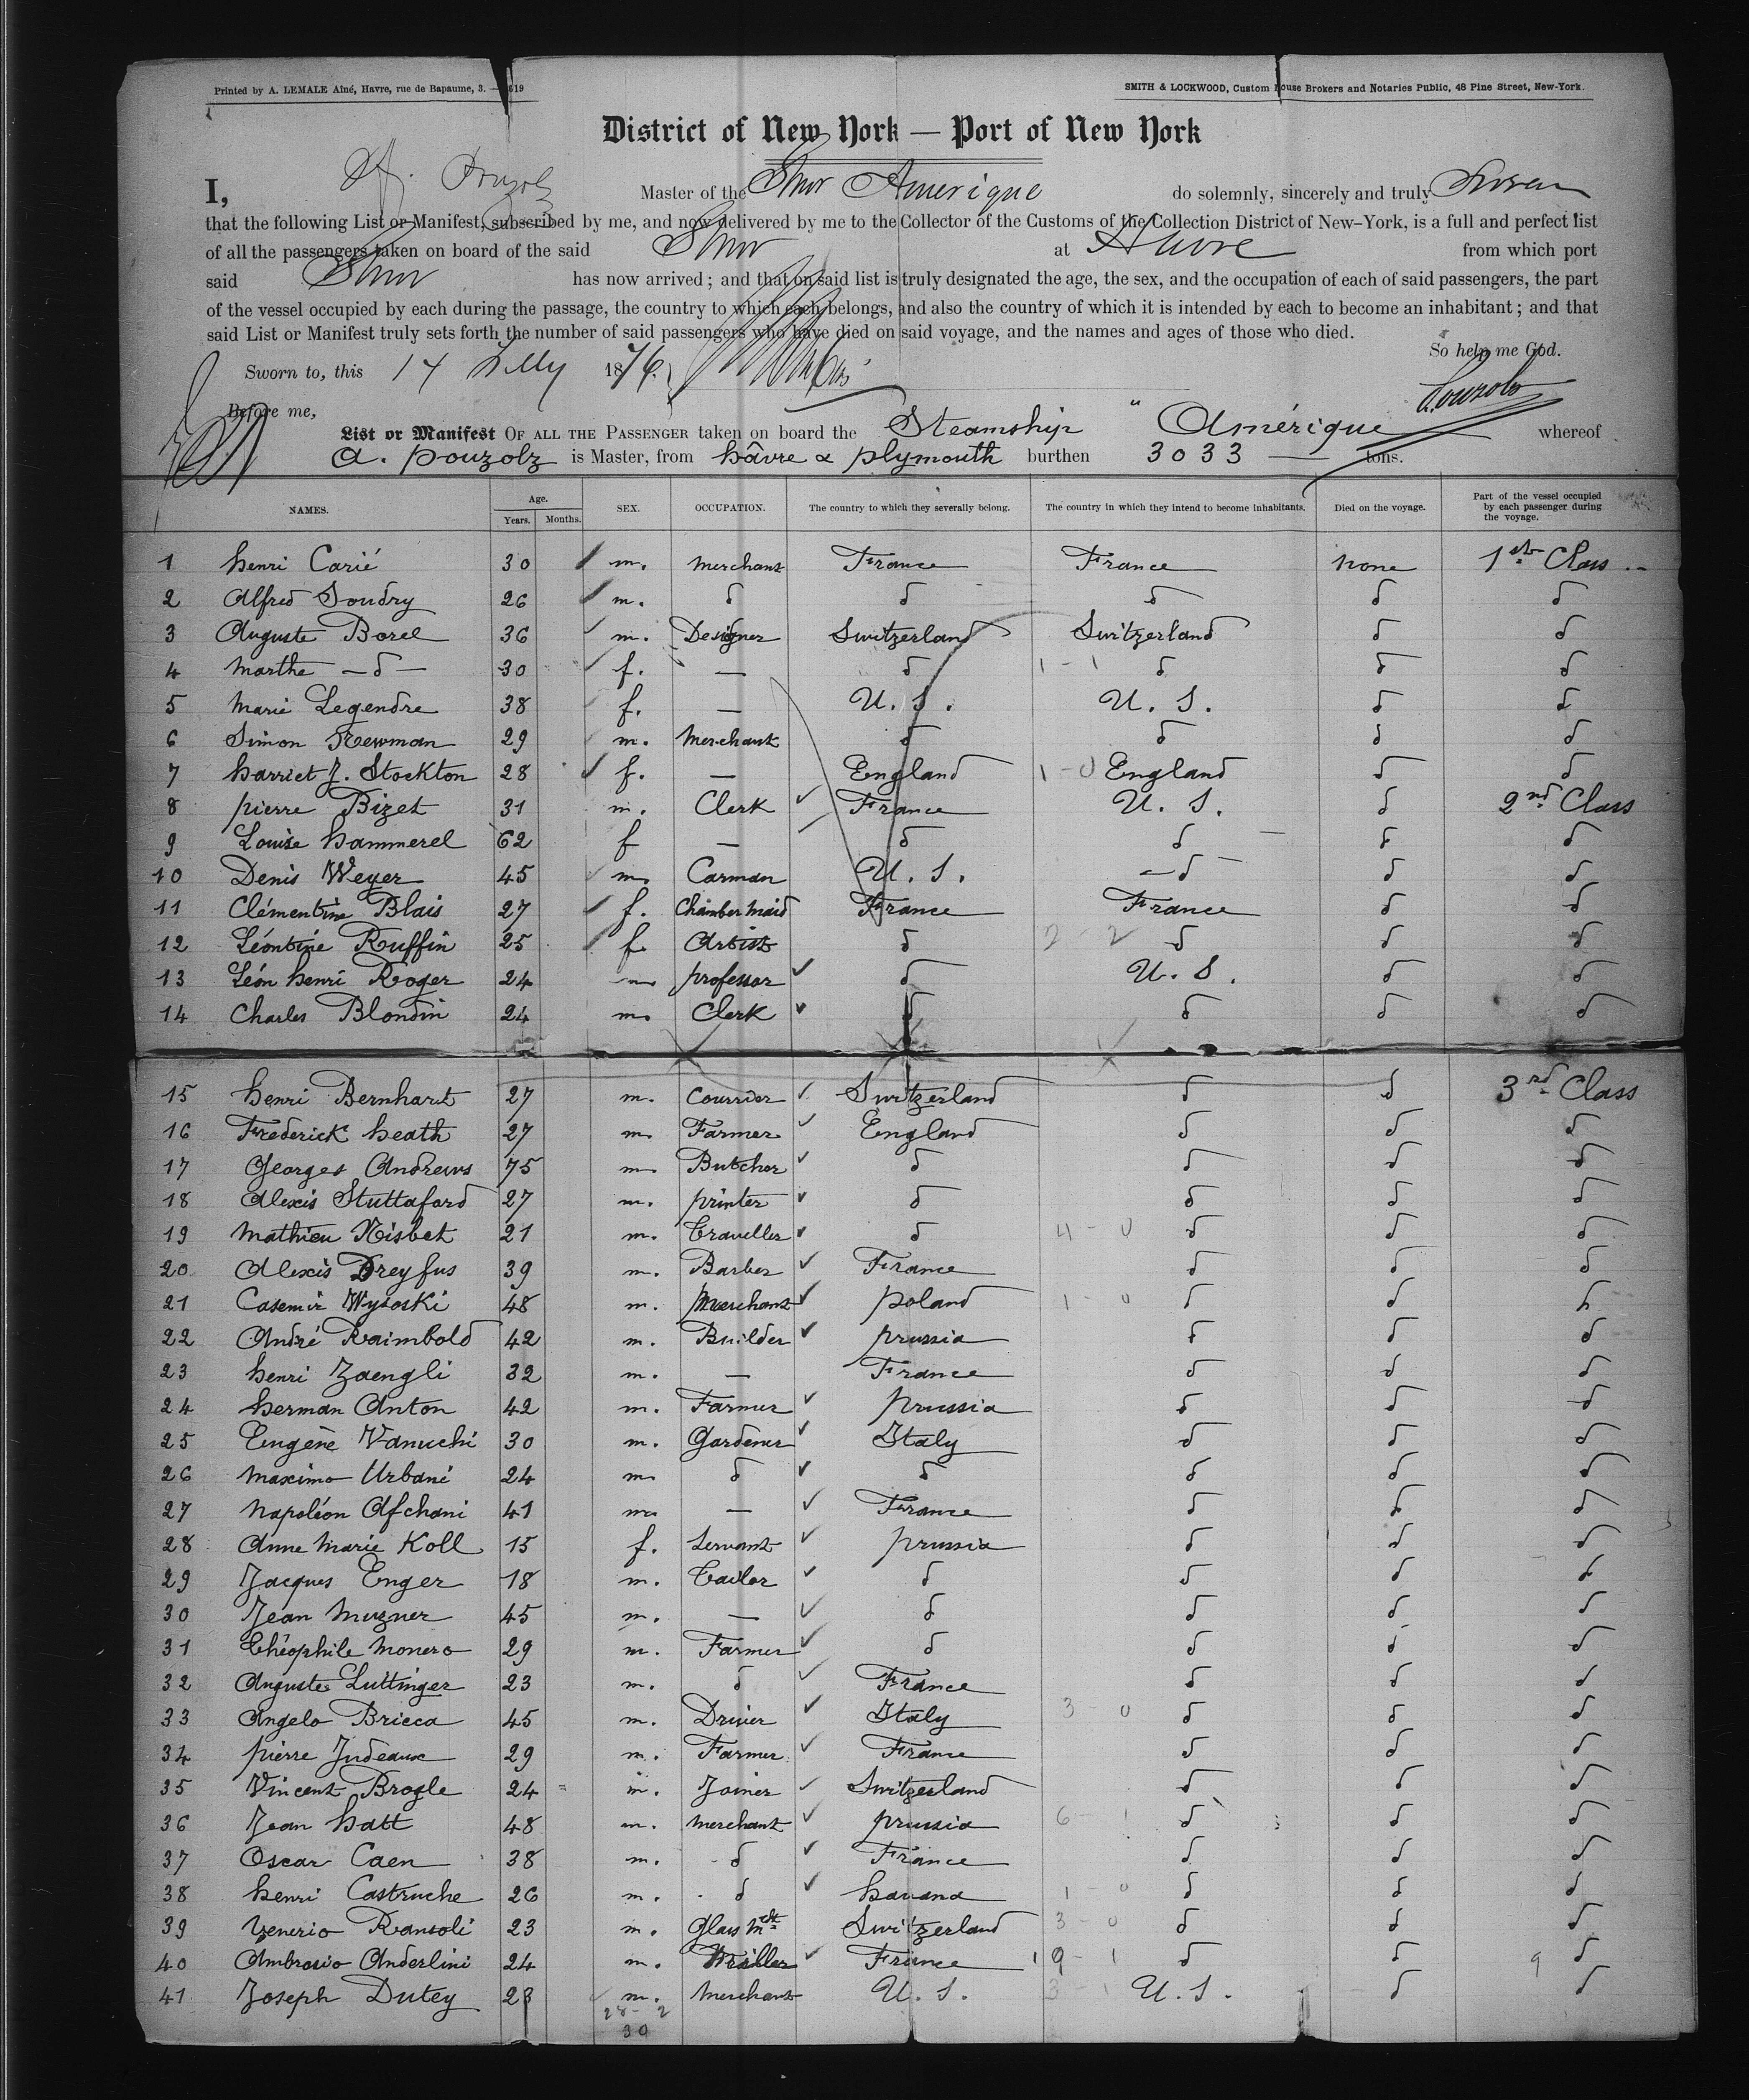 Printed by A. LEMALE Aîné, Havre, rue de Bapaume, 3. — 19
SMITH & LOCKWOOD, Custom House Brokers and Notaries Public, 48 Pine Street, New-York.
District of New York — Port of New York
I, Pouzolz Master of the Stmr Amerique do solemnly, sincerely and truly Swear
that the following List or Manifest, subscribed by me, and now delivered by me to the Collector of the Customs of the Collection District of New-York, is a full and perfect list
of all the passengers taken on board of the said Stmr at Havre from which port
said Stmr has now arrived ; and that on said list is truly designated the age, the sex, and the occupation of each of said passengers, the part
of the vessel occupied by each during the passage, the country to which each belongs, and also the country of which it is intended by each to become an inhabitant ; and that
said List or Manifest truly sets forth the number of said passengers who have died on said voyage, and the names and ages of those who died.
So help me God.
Sworn to, this 14 1876
Pouzolz
Before me,
List or Manifest OF ALL THE PASSENGER taken on board the Steamship " Amérique whereof
A. Pouzolz is Master, from hâvre & plymouth burthen 3033 — tons.
NAMES. Age. Years. Months. SEX. OCCUPATION. The country to which they severally belong. The country in which they intend to become inhabitants. Died on the voyage. Part of the vessel occupied by each passenger during the voyage.
1 henri Carié 30 m. merchant France France none 1st Class
2 Alfred Soudry 26 m. d d d d d
3 Auguste Borel 36 m. Designer Switzerland Switzerland d d
4 Marthe — d — 30 f. — d d d d
5 Marie Legendre 38 f. — U. S. U. S. d d
6 Simon Newman 29 m. Merchant d d d d
7 harriet J. Stockton 28 f. — England England d d
8 pierre Bizet 31 m. Clerk France U. S. d 2nd Class
9 Louise hammerel 62 f — d d d d
10 Denis Weyer 45 m. Carman U. S. — d — d d
11 Clémentine Blais 27 f. Chambermaid France France d d
12 Léontine Ruffin 25 f. Artist d d d d
13 Léon henri Roger 24 m professor d U. S. d d
14 Charles Blondin 24 m. Clerk d d d d
15 henri Bernhart 27 m. Courrier Switzerland d d 3rd Class
16 Frederick heath 27 m. Farmer England d d d
17 Georges Andrews 75 m. Butcher d d d d
18 Alexis Stuttaford 27 m. printer d d d d
19 Mathieu Nisbet 21 m. Traveller d d d d
20 Alexis Dreyfus 39 m. Barber France d d d
21 Casemir Wysoski 48 m. Merchant poland d d d
22 André Raimbold 42 m. Builder prussia d d d
23 henri Zaengli 32 m. — France d d d
24 herman Anton 42 m. Farmer Prussia d d d
25 Eugène Vanuchi 30 m. Gardener Italy d d d
26 Maximo Urbani 24 m. d d d d d
27 Napoléon Afchani 41 m. — France d d d
28 Anne Marie Koll 15 f. Servant prussia d d d
29 Jacques Enger 18 m. Tailor d d d d
30 Jean Muzner 45 m. — d d d d
31 Théophile Monero 29 m. Farmer d d d d
32 Auguste Luttinger 23 m. d France d d d
33 Angelo Bricca 45 m. Driver Italy d d d
34 pierre Judeaux 29 m. Farmer France d d d
35 Vincent Brogle 24 m. Joiner Switzerland d d d
36 Jean hatt 48 m. merchant prussia d d d
37 Oscar Caen 38 m. d France d d d
38 henri Castruche 26 m. d havana d d d
39 Venerio Ransoli 23 m. Glass Mcht Switzerland d d d
40 Ambrosio Anderlini 24 m. France d d d
41 Joseph Dutey 23 m. Merchant U. S. U. S. d d
28 - 2
30